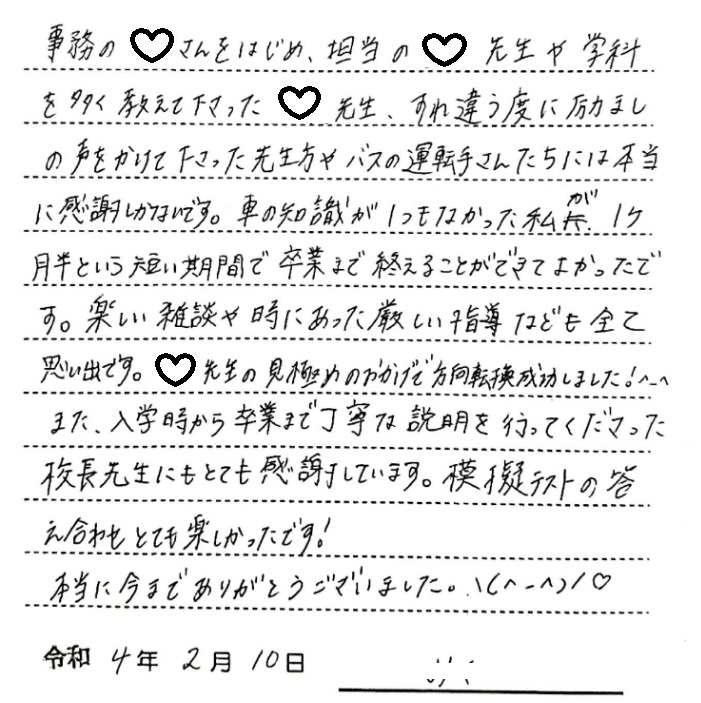 事務の♡さんをはじめ、担当の♡先生や学科
を多く教えて下さった♡先生、すれ違う度に励まし
の声をかけて下さった先生方やバスの運転手さんたちには本当
に感謝しかないです。車の知識が1つもなかった私が、1ヶ
月半という短い期間で卒業まで終えることができてよかったで
す。楽しい雑談や時にあった厳しい指導なども全て
思い出です。♡先生の見極めのおかげで方向転換成功しました!^-^
また、入学時から卒業まで丁寧な説明を行ってくださった
校長先生にもとても感謝しています。模擬テストの答
え合わせもとても楽しかったです!
本当に今までありがとうございました。\(^-^)/♡
令和4年2月10日